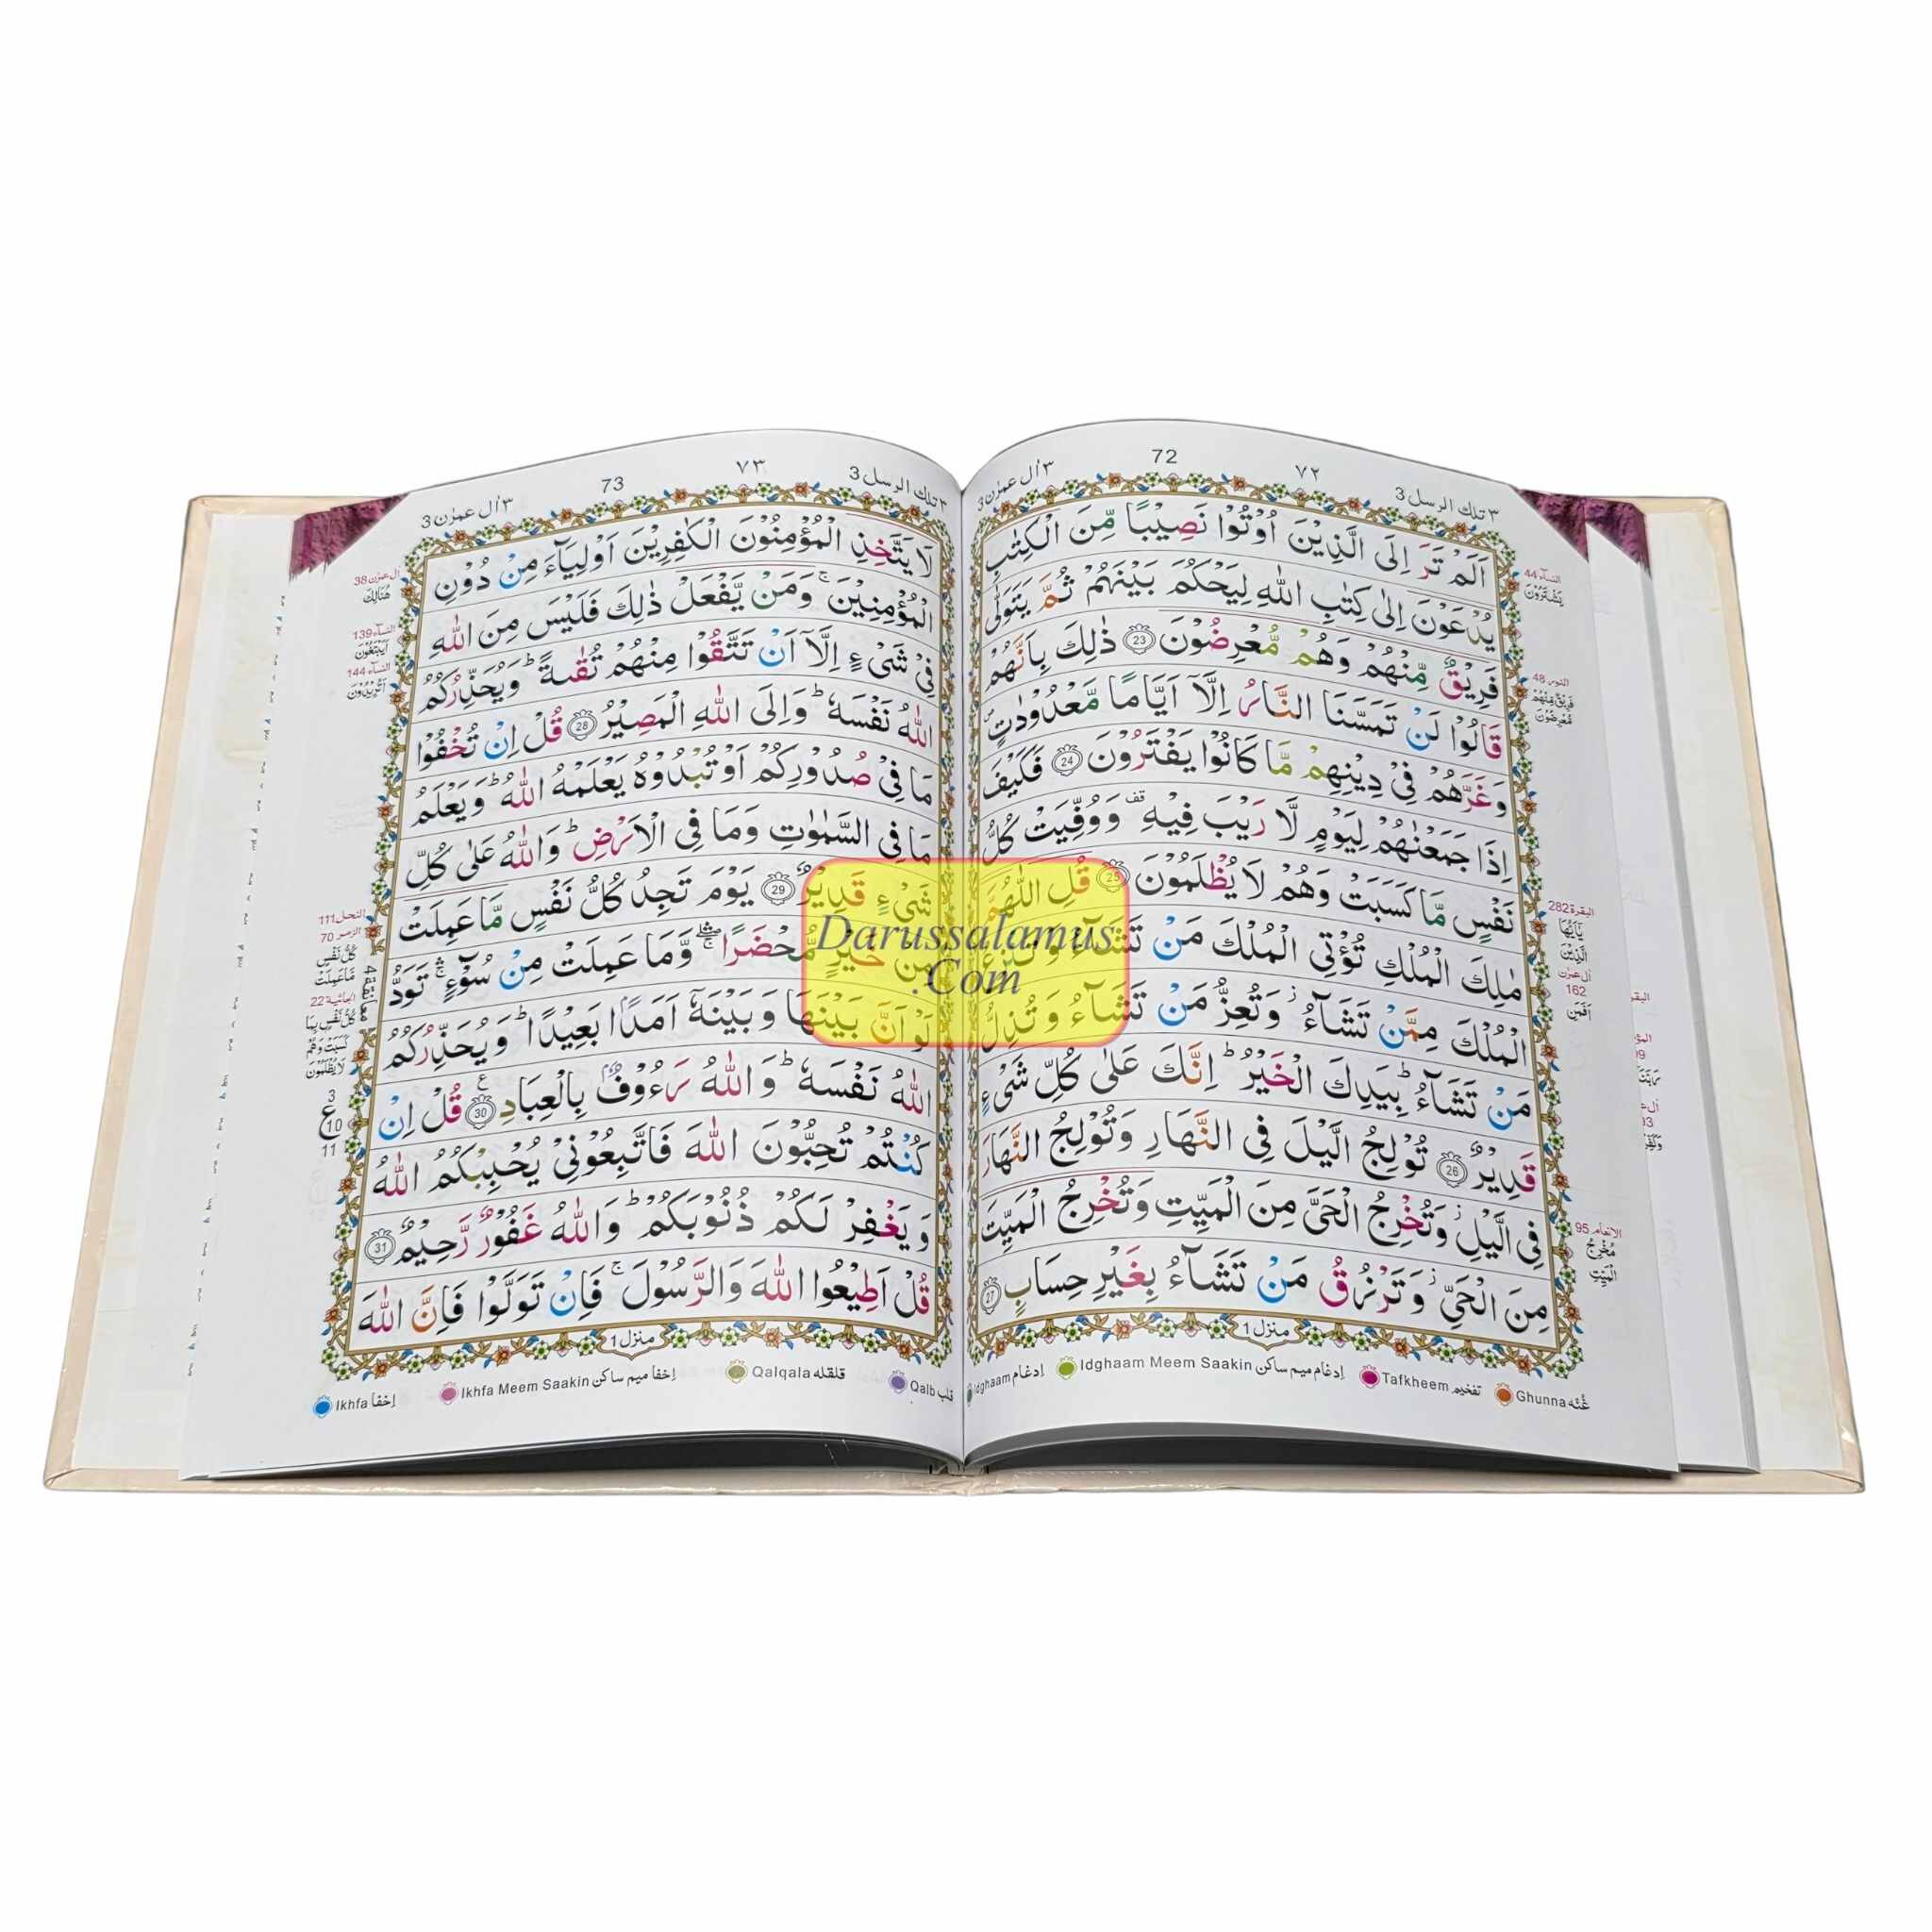 ٣ تلك الرسل 3
٧٢
72
٣ اٰل عمرٰن 3
اَلَمۡ تَرَ اِلَى الَّذِيۡنَ اُوۡتُوۡا نَصِيۡبًا مِّنَ الۡكِتٰبِ
يُدۡعَوۡنَ اِلٰى كِتٰبِ اللّٰهِ لِيَحۡكُمَ بَيۡنَهُمۡ ثُمَّ يَتَوَلّٰى
فَرِيۡقٌ مِّنۡهُمۡ وَهُمۡ مُّعۡرِضُوۡنَ 23 ذٰلِكَ بِاَنَّهُمۡ
قَالُوۡا لَنۡ تَمَسَّنَا النَّارُ اِلَّاۤ اَيَّامًا مَّعۡدُوۡدٰتٍ
وَغَرَّهُمۡ فِىۡ دِيۡنِهِمۡ مَّا كَانُوۡا يَفۡتَرُوۡنَ 24 فَكَيۡفَ
اِذَا جَمَعۡنٰهُمۡ لِيَوۡمٍ لَّا رَيۡبَ فِيۡهِ وَوُفِّيَتۡ كُلُّ
نَفۡسٍ مَّا كَسَبَتۡ وَهُمۡ لَا يُظۡلَمُوۡنَ 25 قُلِ اللّٰهُمَّ
مٰلِكَ الۡمُلۡكِ تُؤۡتِى الۡمُلۡكَ مَنۡ تَشَآءُ وَتَنۡزِعُ
الۡمُلۡكَ مِمَّنۡ تَشَآءُ وَتُعِزُّ مَنۡ تَشَآءُ وَتُذِلُّ
مَنۡ تَشَآءُ ؕ بِيَدِكَ الۡخَيۡرُ ؕ اِنَّكَ عَلٰى كُلِّ شَىۡءٍ
قَدِيۡرٌ 26 تُوۡلِجُ الَّيۡلَ فِى النَّهَارِ وَتُوۡلِجُ النَّهَارَ
فِى الَّيۡلِ وَتُخۡرِجُ الۡحَىَّ مِنَ الۡمَيِّتِ وَتُخۡرِجُ الۡمَيِّتَ
مِنَ الۡحَىِّ وَتَرۡزُقُ مَنۡ تَشَآءُ بِغَيۡرِ حِسَابٍ 27
منزل 1
النسآء 44
يَشۡتَرُوۡنَ
النور 48
فَرِيۡقٌ مِّنۡهُمۡ
مُّعۡرِضُوۡنَ
البقرة 282
يٰۤاَيُّهَا
الَّذِيۡنَ
اٰل عمرٰن
162
اَفَمَنِ
الانعام 95
مُخۡرِجُ
الۡمَيِّتِ
Idghaam ادغام
Idghaam Meem Saakin ادغام میم ساکن
Tafkheem تفخیم
Ghunna غُنّه
٣ تلك الرسل 3
٧٣
73
٣ اٰل عمرٰن 3
لَا يَتَّخِذِ الۡمُؤۡمِنُوۡنَ الۡكٰفِرِيۡنَ اَوۡلِيَآءَ مِنۡ دُوۡنِ
الۡمُؤۡمِنِيۡنَ ۚ وَمَنۡ يَّفۡعَلۡ ذٰلِكَ فَلَيۡسَ مِنَ اللّٰهِ
فِىۡ شَىۡءٍ اِلَّاۤ اَنۡ تَتَّقُوۡا مِنۡهُمۡ تُقٰٮةً ؕ وَيُحَذِّرُكُمُ
اللّٰهُ نَفۡسَهٗ ؕ وَاِلَى اللّٰهِ الۡمَصِيۡرُ 28 قُلۡ اِنۡ تُخۡفُوۡا
مَا فِىۡ صُدُوۡرِكُمۡ اَوۡ تُبۡدُوۡهُ يَعۡلَمۡهُ اللّٰهُ ؕ وَيَعۡلَمُ
مَا فِى السَّمٰوٰتِ وَمَا فِى الۡاَرۡضِ ؕ وَاللّٰهُ عَلٰى كُلِّ
شَىۡءٍ قَدِيۡرٌ 29 يَوۡمَ تَجِدُ كُلُّ نَفۡسٍ مَّا عَمِلَتۡ
مِنۡ خَيۡرٍ مُّحۡضَرًا ۖۚ وَّمَا عَمِلَتۡ مِنۡ سُوۡٓءٍ ۚ تَوَدُّ
لَوۡ اَنَّ بَيۡنَهَا وَبَيۡنَهٗۤ اَمَدًۢا بَعِيۡدًا ؕ وَيُحَذِّرُكُمُ
اللّٰهُ نَفۡسَهٗ ؕ وَاللّٰهُ رَءُوۡفٌۢ بِالۡعِبَادِ 30 قُلۡ اِنۡ
كُنۡتُمۡ تُحِبُّوۡنَ اللّٰهَ فَاتَّبِعُوۡنِىۡ يُحۡبِبۡكُمُ اللّٰهُ
وَيَغۡفِرۡ لَكُمۡ ذُنُوۡبَكُمۡ ؕ وَاللّٰهُ غَفُوۡرٌ رَّحِيۡمٌ 31
قُلۡ اَطِيۡعُوا اللّٰهَ وَالرَّسُوۡلَ ۚ فَاِنۡ تَوَلَّوۡا فَاِنَّ اللّٰهَ
منزل 1
اٰل عمرٰن 38
هُنَالِكَ
النسآء 139
اَيَبۡتَغُوۡنَ
النسآء 144
اَتُرِيۡدُوۡنَ
النحل 111
الزمر 70
كُلُّ نَفۡسٍ
مَّا عَمِلَتۡ
الجاثية 22
كُلُّ نَفۡسٍۢ بِمَا
كَسَبَتۡ وَهُمۡ
لَا يُظۡلَمُوۡنَ
3
ع
10
11
Ikhfa اخفا
Ikhfa Meem Saakin اخفا میم ساکن
Qalqala قلقله
Qalb قلب
Darussalamus
.Com